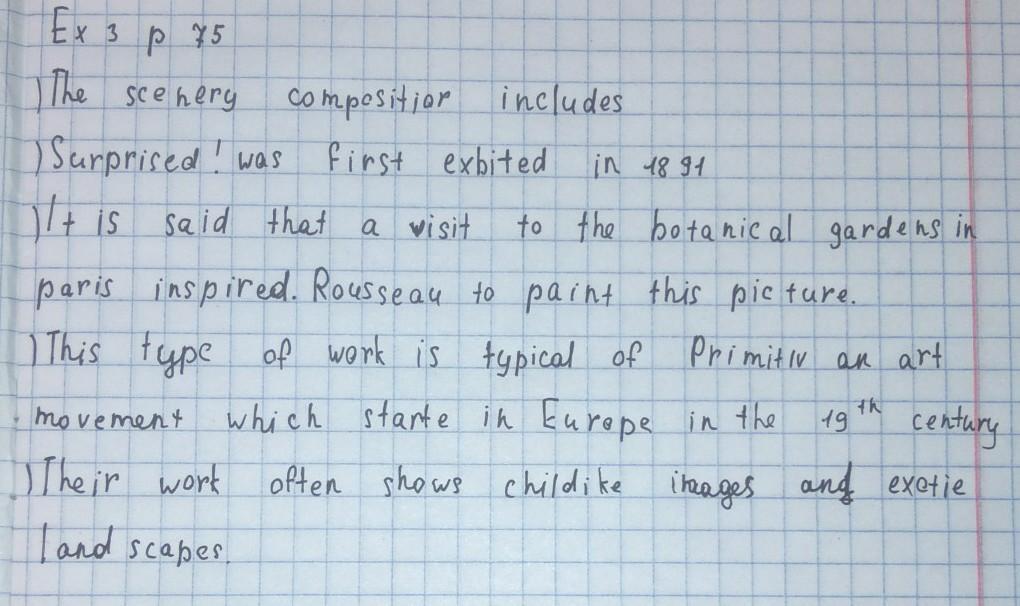 Ex 3 p 75
)The scenery compositior includes
)Surprised! was first exbited in 1891
)It is said that a visit to the botanical gardens in
paris inspired. Rousseau to paint this picture.
)This type of work is typical of Primitiv an art
movement which starte in Europe in the 19th century
)Their work often shows childike images and exotie
landscapes.